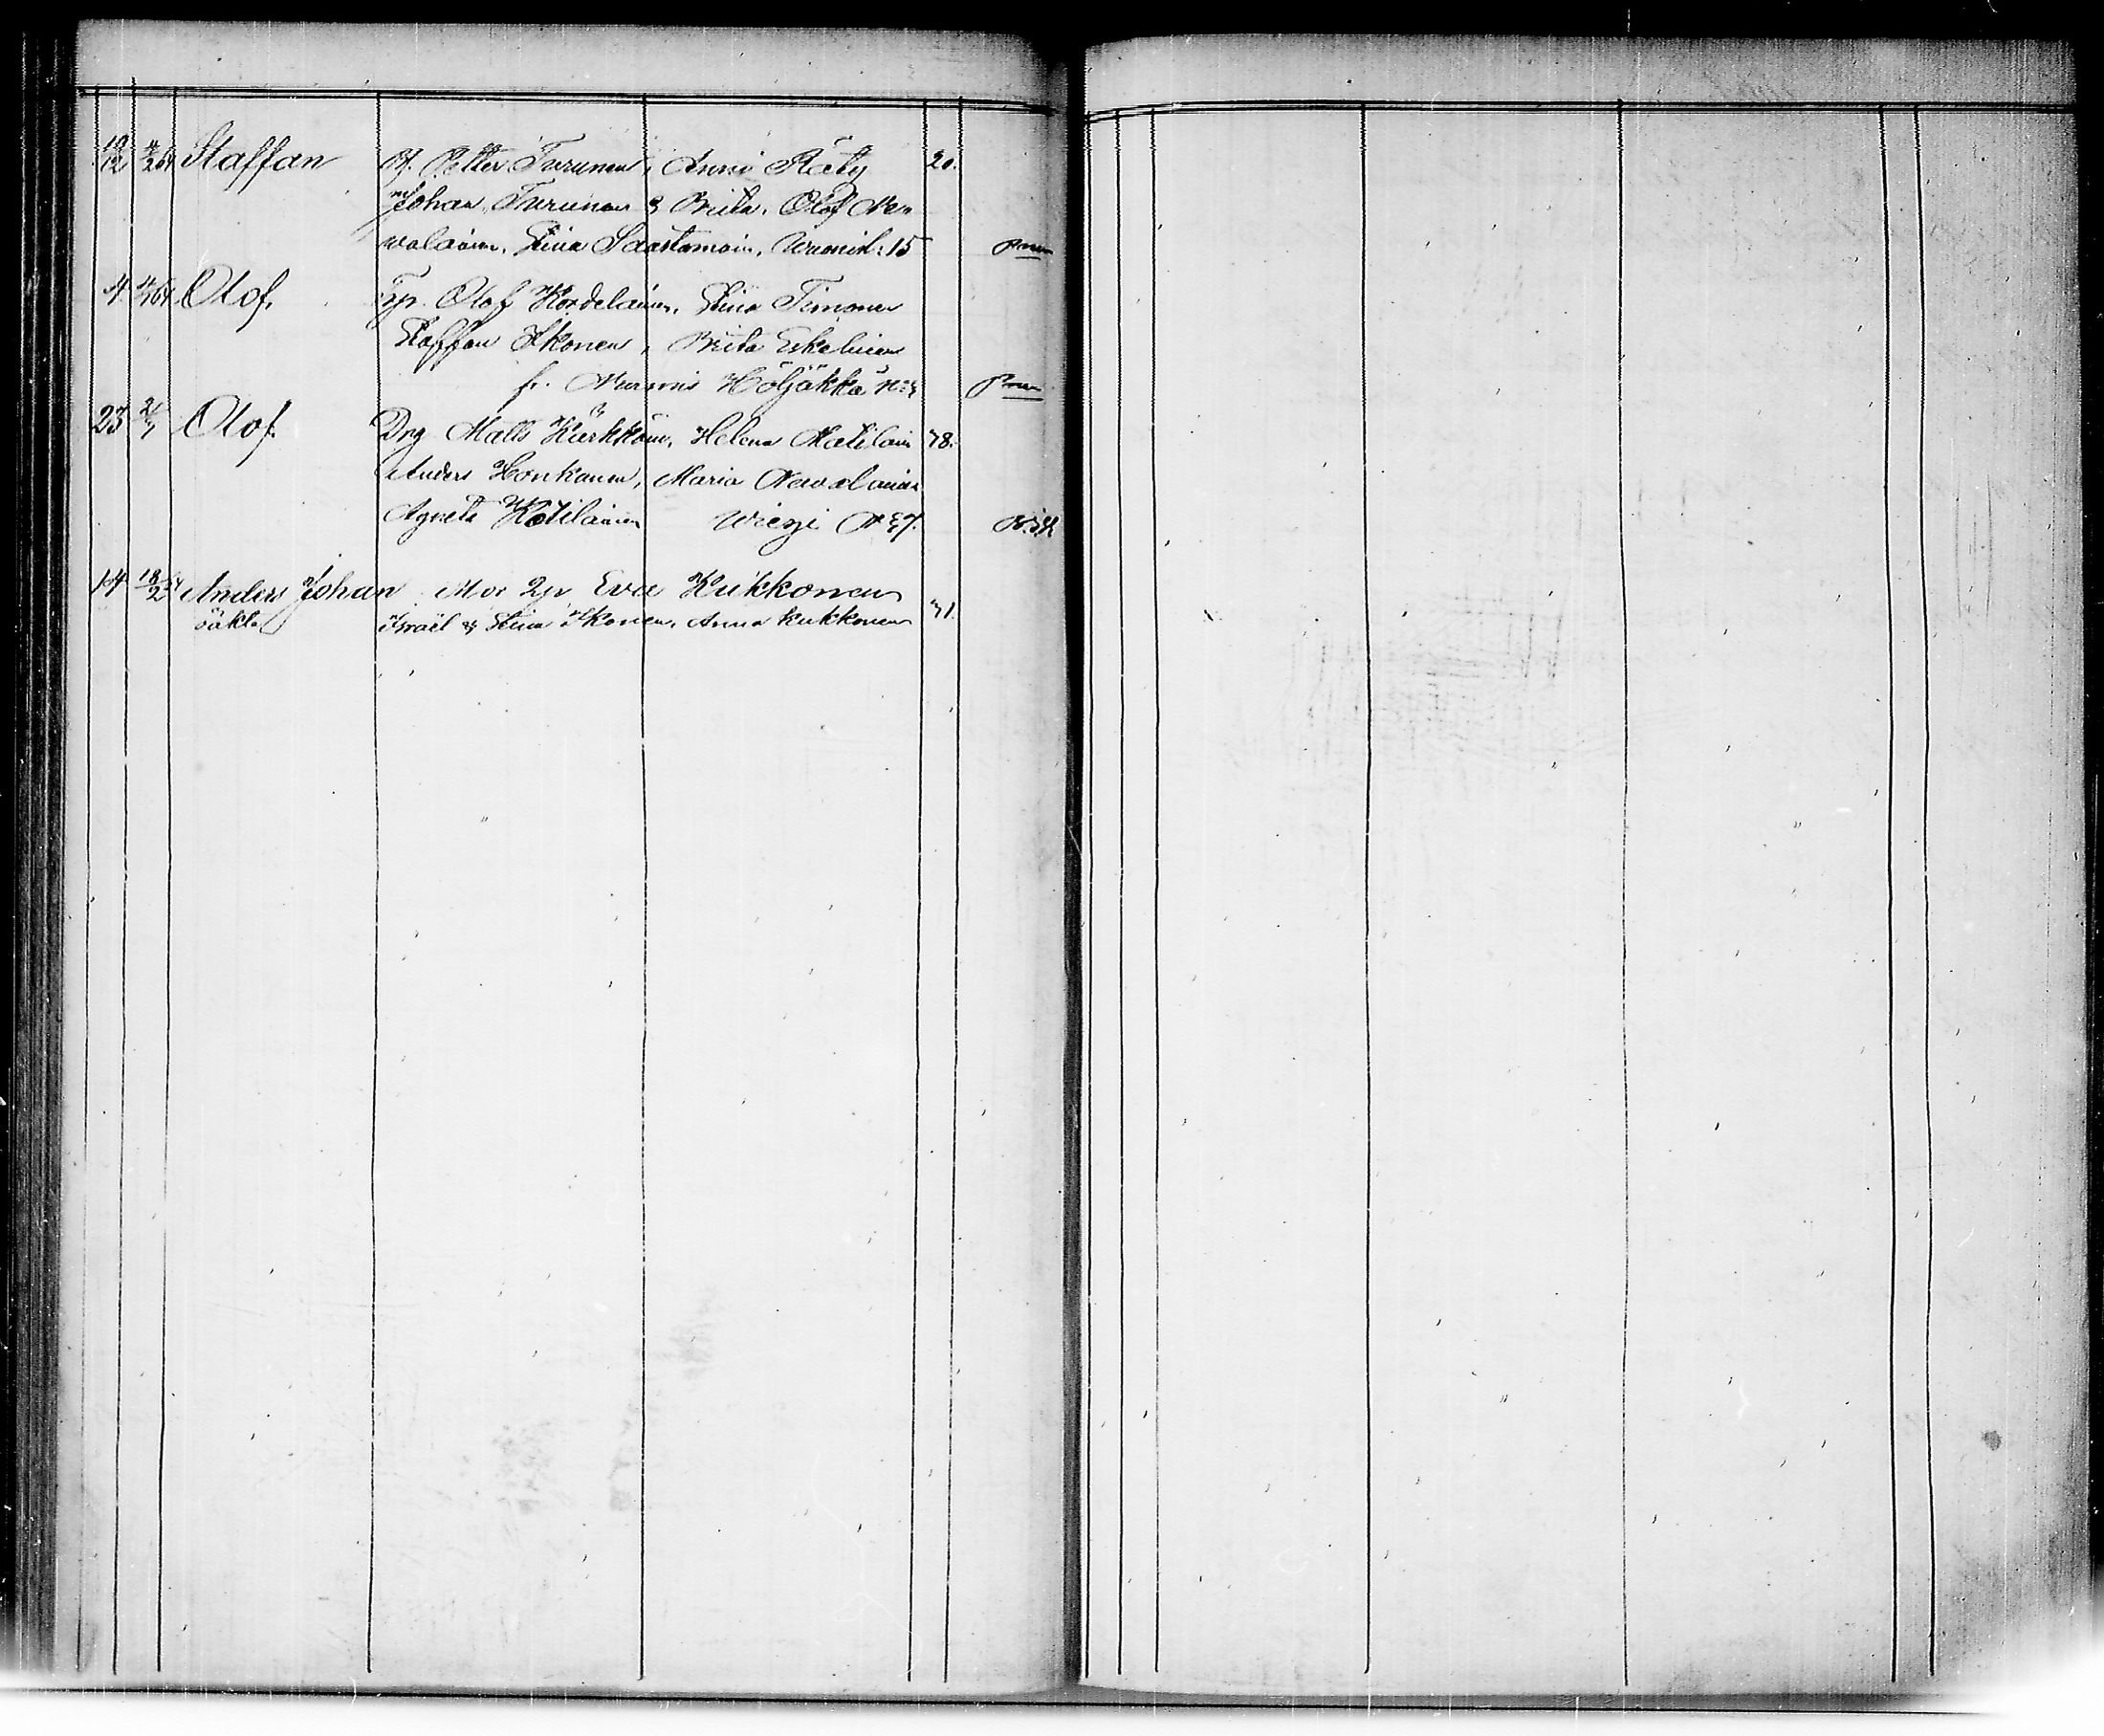 19/12 Staffan B. Petter Turunen, Anna Räty 20.
Johan Turunen & Brita, Olof Ne-
valainen, Stina Saastamoin, 15
4 Olof. Olof Kordelainen, Stina Timonen
Staffan Ikonen, Brita Eskelinen
fr. Nurmis Höljäkkä
23 Olof. Drg Matts Kärkkäin, Helena Matilain 78.
Anders Honkanen, Maria Nevalainen
Agneta Kotilainen Wieji N 27.
14 18/2 Anders Johan Mor Eva Kukkonen
oäkta Israël & Stina Ikonen, Anna Kukkonen 71.